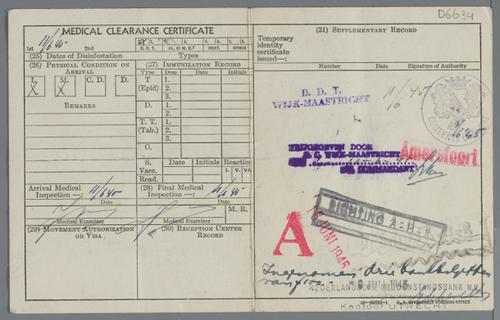 D6634
MEDICAL CLEARANCE CERTIFICATE
1st 11/6 45 2nd
D. D. T.
(25) Dates of Disinfestation Types
(26) PHYSICAL CONDITION ON ARRIVAL
L. M. C. D. D.
X X
REMARKS
(27) IMMUNIZATION RECORD
Type Dose Date Initials
T (Epid) 1.
2.
3.
D. 1.
2.
T. T. (Tab.) 1.
2.
3.
O.
S. Date Initials Reaction
Vacc. I. V. VA
Read.
Arrival Medical Inspection —: 11/6 45
Date
Medical Examiner
(28) Final Medical Inspection —: 11/6 45
Date
M. R.
Medical Examiner
(29) MOVEMENT AUTHORIZATION OR VISA
(30) RECEPTION CENTER RECORD
(31) SUPPLEMENTARY RECORD
Temporary identity certificate issued:—
Number Date Signature of Authority
D. D. T.
WIJK-MAASTRICHT
11/6 '45
UITGEGEVEN DOOR
D. C. WIJK-MAASTRICHT
COMMANDANT
Amersfoort
RICHTING A-B-N
A
JUNI 1945
Ingenomen drie bankbiljetten
van f 100.-
JULI 1945
NEDERLANDSCHE MIDDENSTANDSBANK N.V.
Kantoor UTRECHT
U. S. GOVERNMENT PRINTING OFFICE